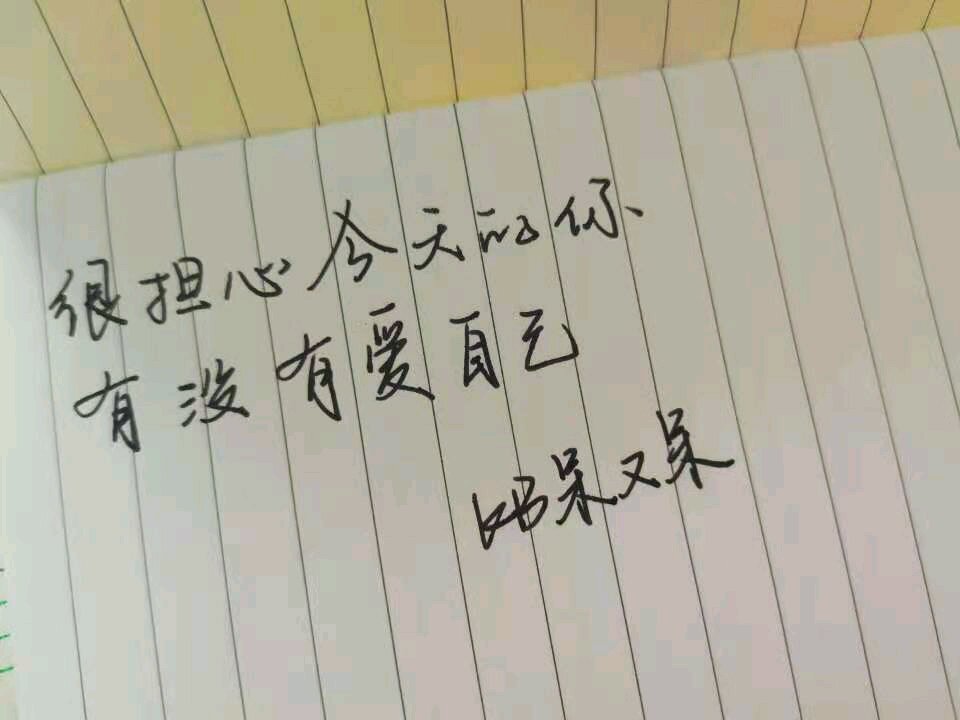 很担心今天的你
有没有爱自己
呆又呆